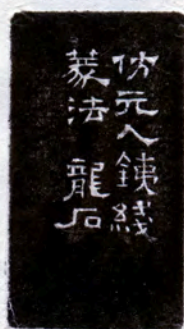 仿元人鐵綫
篆法 龍石